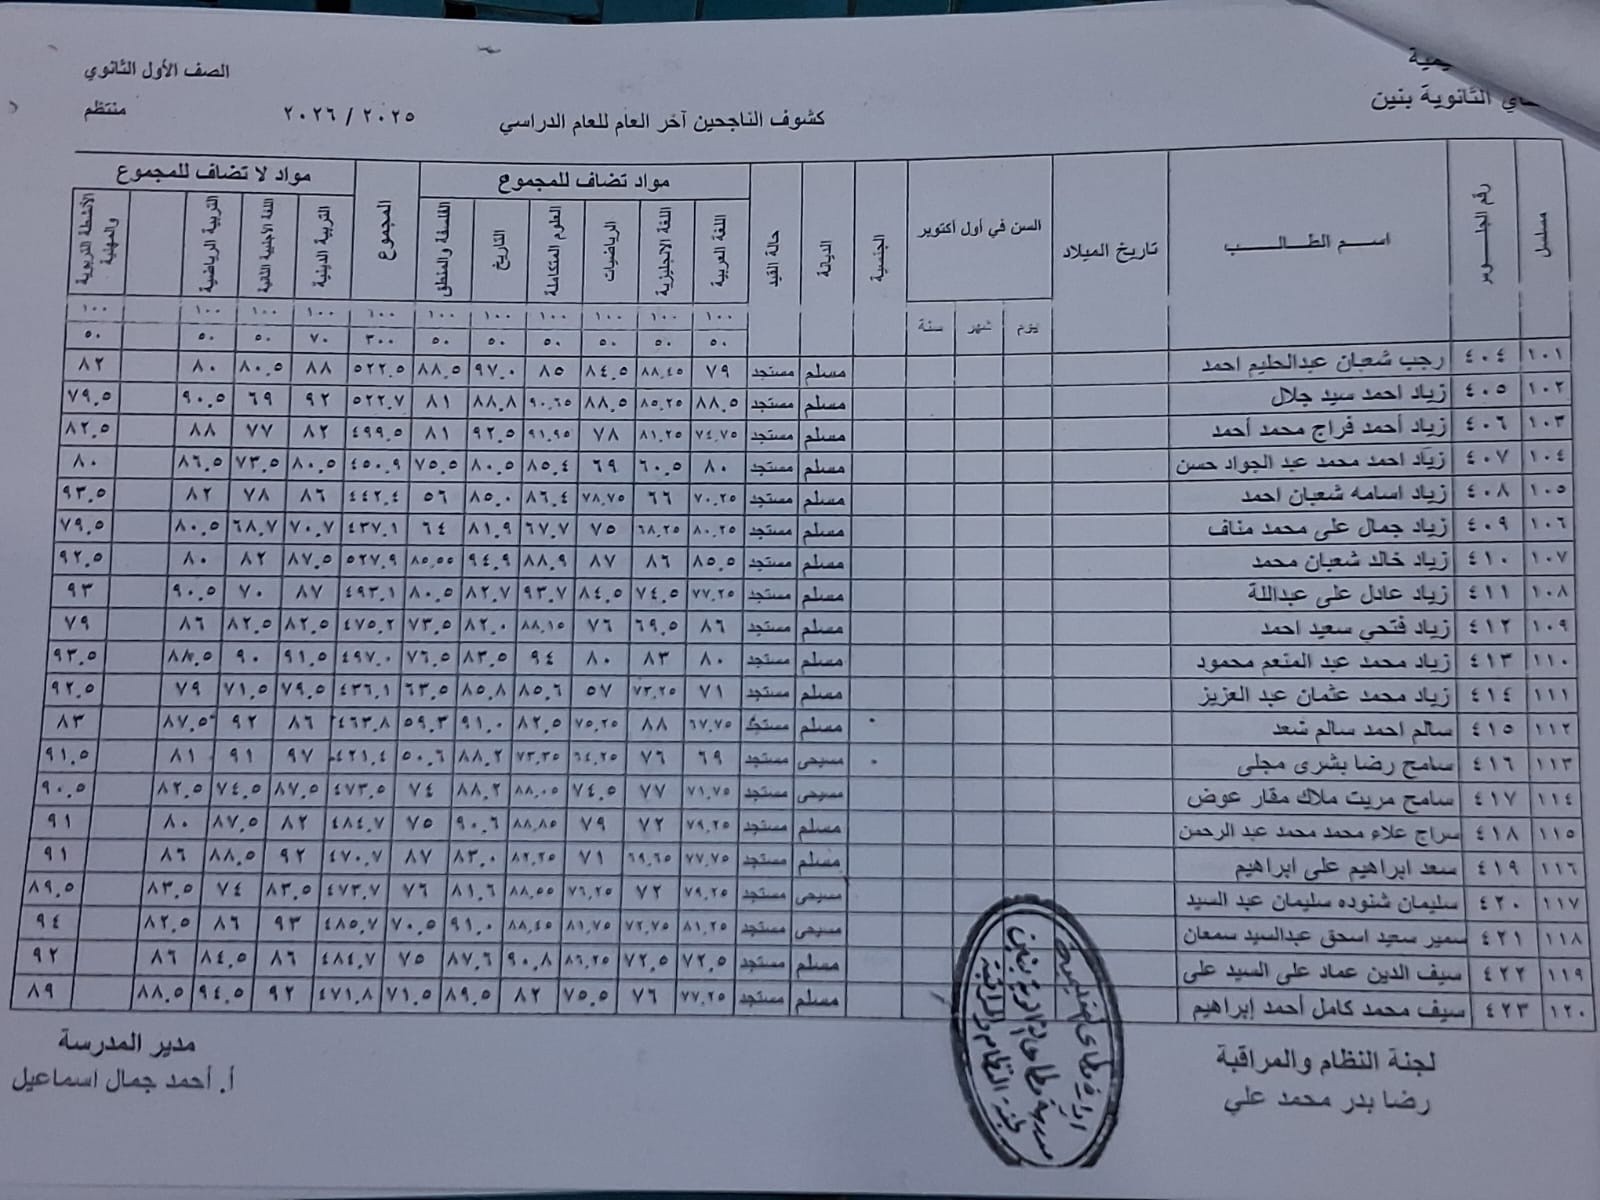 الثانوية بنين
الصف الأول الثانوي
كشوف الناجحين آخر العام للعام الدراسي ٢٠٢٥ / ٢٠٢٦ منتظم
مسلسل رقم الجلوس اسم الطالب تاريخ الميلاد السن في أول أكتوبر الجنسية الديانة حالة القيد مواد تضاف للمجموع المجموع مواد لا تضاف للمجموع
يوم شهر سنة اللغة العربية اللغة الانجليزية الرياضيات العلوم المتكاملة التاريخ الفلسفة والمنطق التربية الدينية اللغة الأجنبية الثانية التربية الرياضية الأنشطة التربوية والمهنية
١٠٠ ١٠٠ ١٠٠ ١٠٠ ١٠٠ ١٠٠ ١٠٠ ١٠٠ ١٠٠ ١٠٠ ١٠٠
٥٠ ٥٠ ٥٠ ٥٠ ٥٠ ٥٠ ٣٠٠ ٧٠ ٥٠ ٥٠ ٥٠
١٠١ ٤٠٤ رجب شعبان عبدالحليم احمد مسلم مستجد ٧٩ ٨٨,٤٥ ٨٤,٥ ٨٥ ٩٧,٠ ٨٨,٥ ٥٢٢,٥ ٨٨ ٨٠,٥ ٨٠ ٨٢
١٠٢ ٤٠٥ زياد احمد سيد جلال مسلم مستجد ٨٨,٥ ٨٥,٢٥ ٨٨,٥ ٩٠,٦٥ ٨٨,٨ ٨١ ٥٢٢,٧ ٩٢ ٦٩ ٩٠,٥ ٧٩,٥
١٠٣ ٤٠٦ زياد أحمد فراج محمد أحمد مسلم مستجد ٧٤,٧٥ ٨١,٢٥ ٧٨ ٩١,٩٥ ٩٢,٥ ٨١ ٤٩٩,٥ ٨٢ ٧٧ ٨٨ ٨٢,٥
١٠٤ ٤٠٧ زياد احمد محمد عبد الجواد حسن مسلم مستجد ٨٠ ٦٠,٥ ٦٩ ٨٥,٤ ٨٠,٥ ٧٥,٥ ٤٥٠,٩ ٨٠,٥ ٧٣,٥ ٨٦,٥ ٨٠
١٠٥ ٤٠٨ زياد اسامه شعبان احمد مسلم مستجد ٧٠,٢٥ ٦٦ ٧٨,٧٥ ٨٦,٤ ٨٥,٠ ٥٦ ٤٤٢,٤ ٨٦ ٧٨ ٨٢ ٩٣,٥
١٠٦ ٤٠٩ زياد جمال على محمد مناف مسلم مستجد ٨٠,٢٥ ٦٨,٢٥ ٧٥ ٦٧,٧ ٨١,٩ ٦٤ ٤٣٧,١ ٧٠,٧ ٦٨,٧ ٨٠,٥ ٧٩,٥
١٠٧ ٤١٠ زياد خالد شعبان محمد مسلم مستجد ٨٥,٥ ٨٦ ٨٧ ٨٨,٩ ٩٤,٩ ٨٥,٥٥ ٥٢٧,٩ ٨٧,٥ ٨٢ ٨٠ ٩٢,٥
١٠٨ ٤١١ زياد عادل على عبداللة مسلم مستجد ٧٧,٢٥ ٧٤,٥ ٨٤,٥ ٩٣,٧ ٨٢,٧ ٨٠,٥ ٤٩٣,١ ٨٧ ٧٠ ٩٠,٥ ٩٣
١٠٩ ٤١٢ زياد فتحي سعيد احمد مسلم مستجد ٨٦ ٦٩,٥ ٧٦ ٨٨,١٥ ٨٢,٠ ٧٣,٥ ٤٧٥,٢ ٨٢,٥ ٨٢,٥ ٨٦ ٧٩
١١٠ ٤١٣ زياد محمد عبد المنعم محمود مسلم مستجد ٨٠ ٨٣ ٨٠ ٩٤ ٨٣,٥ ٧٦,٥ ٤٩٧,٠ ٩١,٥ ٩٠ ٨٨,٥ ٩٣,٥
١١١ ٤١٤ زياد محمد عثمان عبد العزيز مسلم مستجد ٧١ ٧٣,٢٥ ٥٧ ٨٥,٦ ٨٥,٨ ٦٣,٥ ٤٣٦,١ ٧٩,٥ ٧١,٥ ٧٩ ٩٢,٥
١١٢ ٤١٥ سالم احمد سالم سعد مسلم مستجد ٦٧,٧٥ ٨٨ ٧٥,٢٥ ٨٢,٥ ٩١,٠ ٥٩,٣ ٤٦٣,٨ ٨٦ ٩٢ ٨٧,٥ ٨٣
١١٣ ٤١٦ سامح رضا بشرى مجلى مسيحى مستجد ٦٩ ٧٦ ٦٤,٢٥ ٧٣,٣٥ ٨٨,٢ ٥٠,٦ ٤٢١,٤ ٩٧ ٩١ ٨١ ٩١,٥
١١٤ ٤١٧ سامح مريت ملاك مقار عوض مسيحى مستجد ٧١,٧٥ ٧٧ ٧٤,٥ ٨٨,٠٥ ٨٨,٢ ٧٤ ٤٧٣,٥ ٨٧,٥ ٧٤,٥ ٨٢,٥ ٩٠,٥
١١٥ ٤١٨ سراج علاء محمد محمد عبد الرحمن مسلم مستجد ٧٩,٢٥ ٧٢ ٧٩ ٨٨,٨٥ ٩٠,٦ ٧٥ ٤٨٤,٧ ٨٢ ٨٧,٥ ٨٠ ٩١
١١٦ ٤١٩ سعد ابراهيم على ابراهيم مسلم مستجد ٧٧,٧٥ ٦٩,٦٥ ٧١ ٨٢,٢٥ ٨٣,٠ ٨٧ ٤٧٠,٧ ٩٢ ٨٨,٥ ٨٦ ٩١
١١٧ ٤٢٠ سليمان شنوده سليمان عبد السيد مسيحى مستجد ٧٩,٢٥ ٧٢ ٧٦,٢٥ ٨٨,٥٥ ٨١,٦ ٧٦ ٤٧٣,٧ ٨٣,٥ ٧٤ ٨٣,٥ ٨٩,٥
١١٨ ٤٢١ سمير سعيد اسحق عبدالسيد سمعان مسيحى مستجد ٨١,٢٥ ٧٢,٧٥ ٨١,٧٥ ٨٨,٤٥ ٩١,٠ ٧٠,٥ ٤٨٥,٧ ٩٣ ٨٦ ٨٢,٥ ٩٤
١١٩ ٤٢٢ سيف الدين عماد على السيد على مسلم مستجد ٧٢,٥ ٧٢,٥ ٨٦,٢٥ ٩٠,٨ ٨٧,٦ ٧٥ ٤٨٤,٧ ٨٦ ٨٤,٥ ٨٦ ٩٢
١٢٠ ٤٢٣ سيف محمد كامل أحمد إبراهيم مسلم مستجد ٧٧,٢٥ ٧٦ ٧٥,٥ ٨٢ ٨٩,٥ ٧١,٥ ٤٧١,٨ ٩٢ ٩٤,٥ ٨٨,٥ ٨٩
لجنة النظام والمراقبة
رضا بدر محمد علي
مدير المدرسة
أ. أحمد جمال اسماعيل